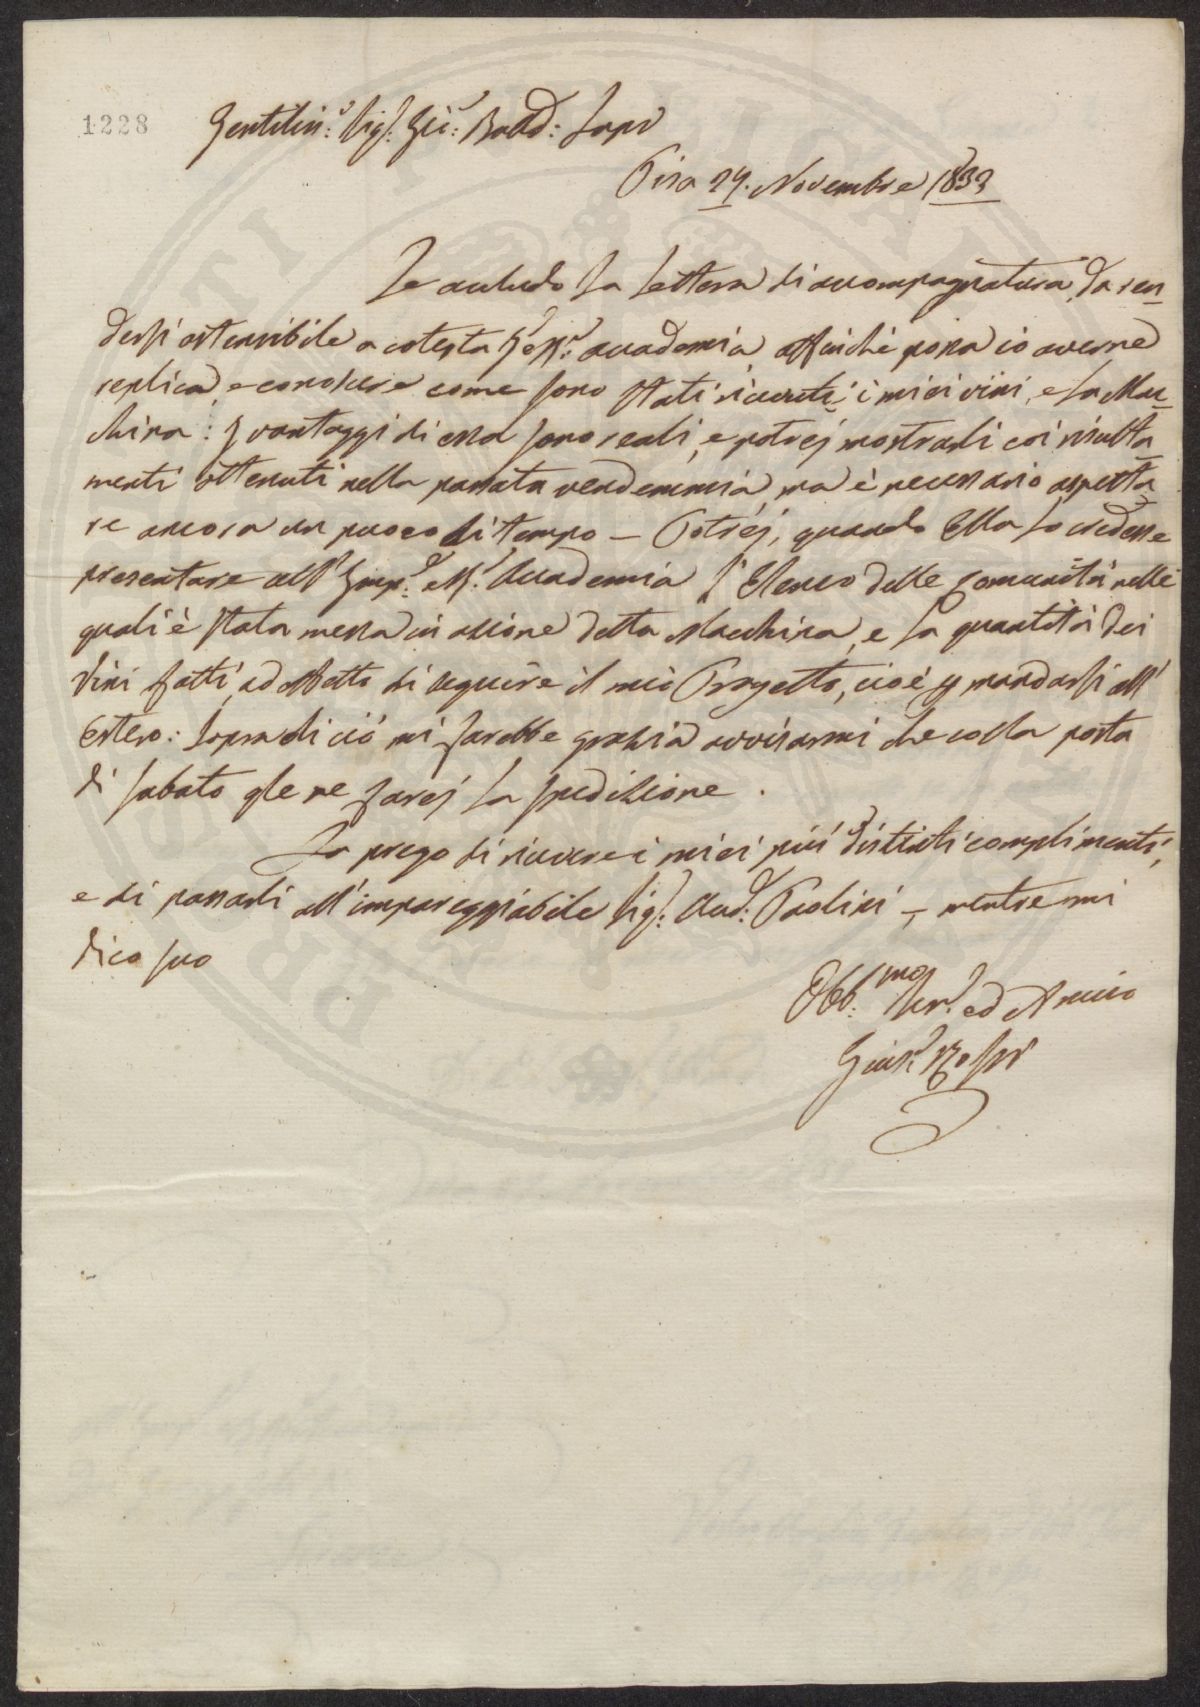 1228
Gentilis.e Sig.r Gu: Badd:
Pisa 29. Novembre 1833
Le accludo la lettera di accompagnatura, da ren-
dersi ostensibile a cotesta I. e R. Accademia, affinchè possa io averne
replica, e conoscere come sono stati ricevuti i miei vini, e la Mac-
china: I vantaggi di essa sono reali, e potrej mostrarli coi risulta-
menti ottenuti nella passata vendemmia, ma è necessario aspetta-
re ancora un puoco di tempo – Potrej, quando Ella lo credesse
presentare all' Imp.e e R.e Accademia l'Elenco delle Comunità nelle
quali è stata messa in azione detta Macchina, e la quantità dei
Vini fatti, ad effetto di seguire il mio Progetto, cioè p mandarsi all'
Estero: Sopra di ciò mi farebbe grazia avvisarmi che colla posta
di sabato gle ne farej la spedizione.
La prego di ricevere i miei più distinti complimenti,
e di passarli all'impareggiabile Sig.r Aud.e Paolini –, mentre mi
dico suo
Obb.mo Ser.e ed Amico
Gius.e Rossi